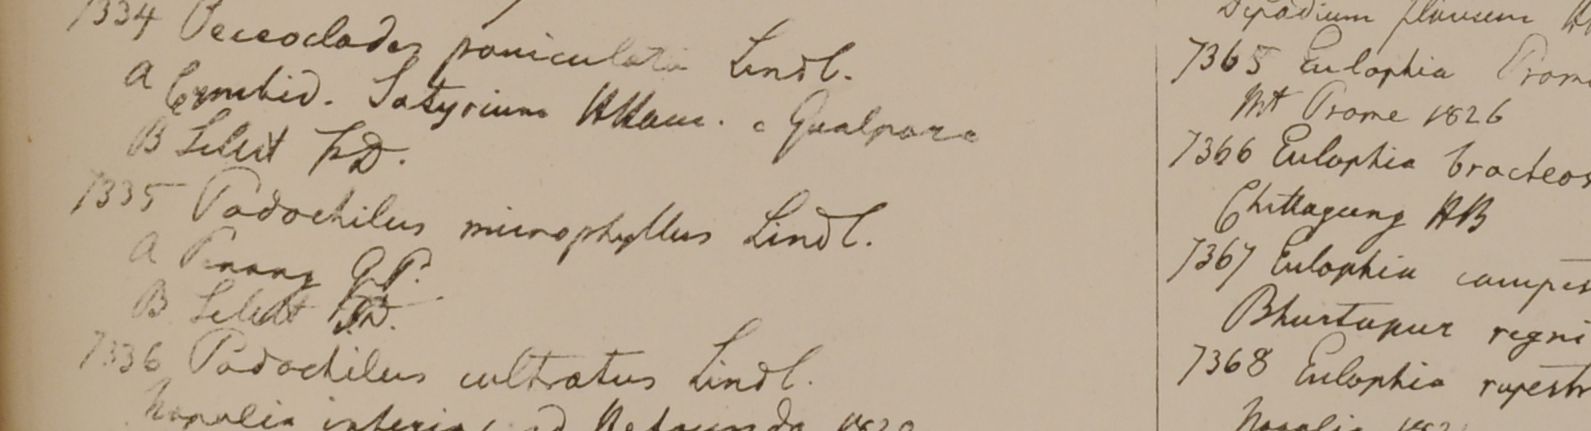 7334 Peceoclades paniculata Lindl.
a Cymbid. Satyrium HHam. e Gualpara
B Silhet FD.
7335 Podochilus microphyllus Lindl.
a Penang G.P.
B Silhet FD.
7336 Podochilus cultratus Lindl.
Napalia inferior ad 1820
Dipodium flavum
7365 Eulophia Prome
Mt Prome 1826
7366 Eulophia bracteos
Chittagung HB
7367 Eulophia campes
Bhurtapur regni
7368 Eulophia rupestr
Napalia 182